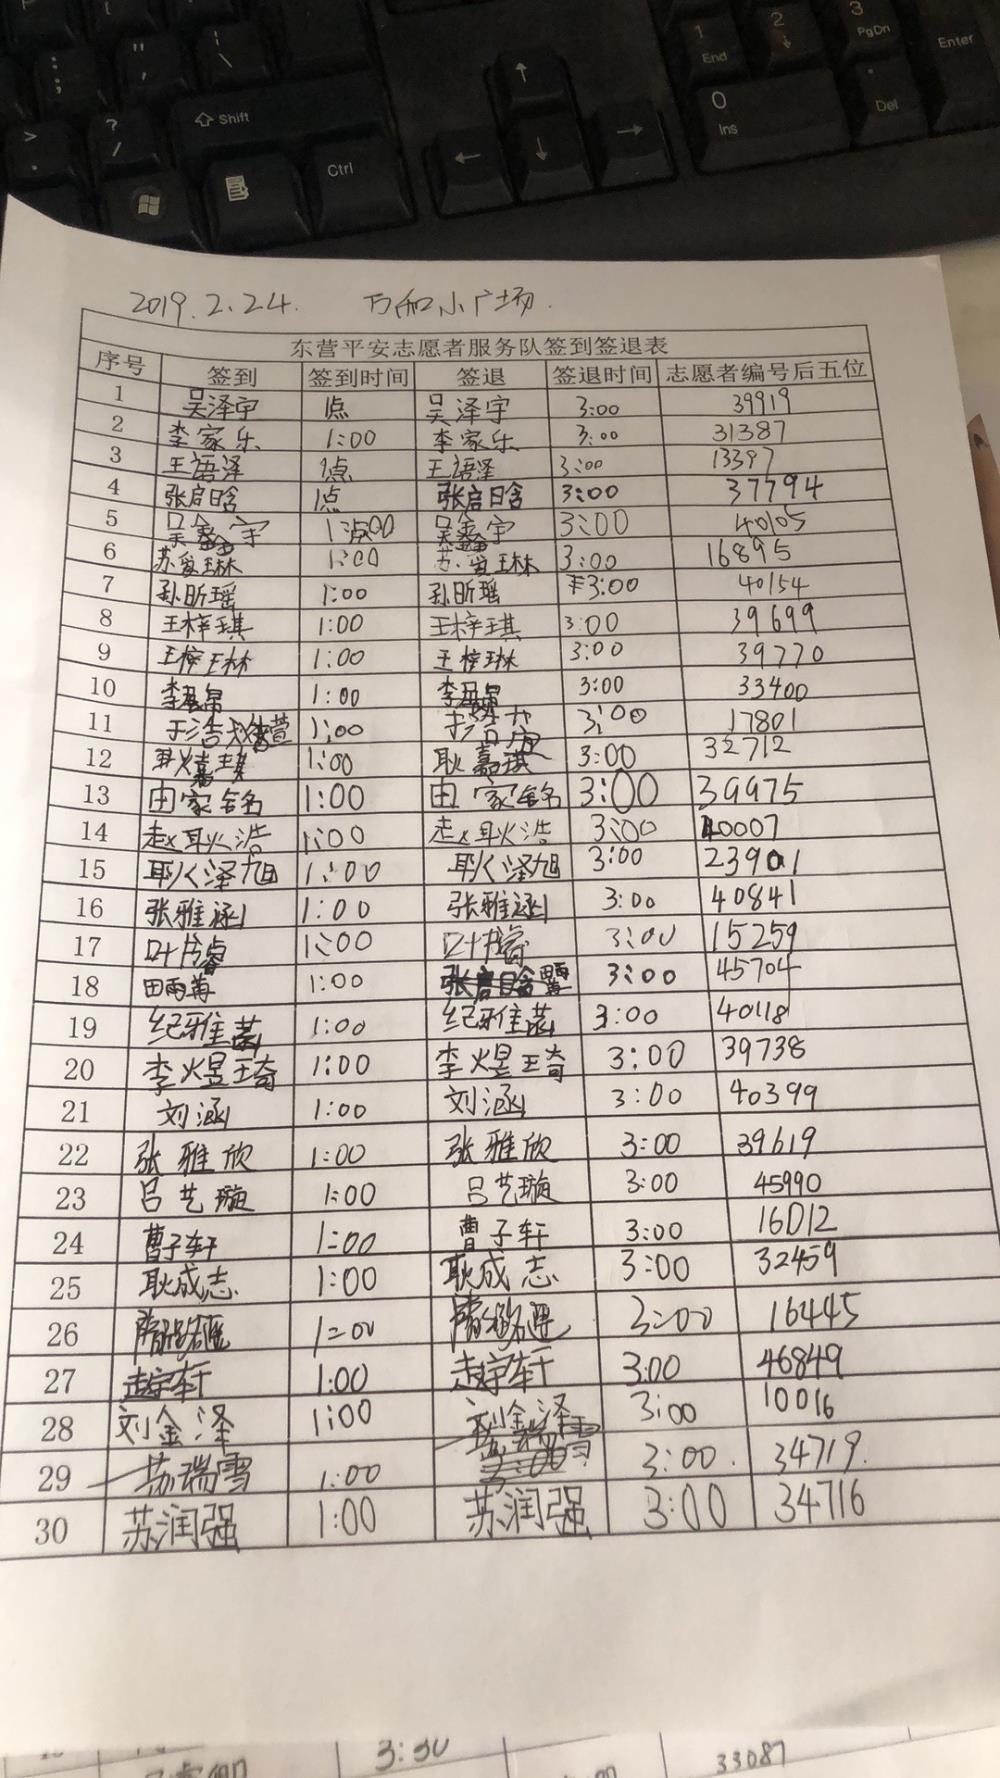 " '
: ;
| \
1 End
2
3 PgDn
Enter
> .
? /
Shift
0 Ins
. Del
Ctrl
2019.2.24. 万和小广场.
东营平安志愿者服务队签到签退表
序号 签到 签到时间 签退 签退时间 志愿者编号后五位
1 吴泽宇 1点 吴泽宇 3:00 39919
2 李家乐 1:00 李家乐 3:00 31387
3 王语泽 1点 王语泽 3:00 13397
4 张启晗 1点 张启晗 3:00 37794
5 吴鑫宇 1:00 吴鑫宇 3:00 40105
6 苏爱琳 1:00 苏爱琳 3:00 16895
7 孙昕瑶 1:00 孙昕瑶 3:00 40154
8 王梓琪 1:00 王梓琪 3:00 39699
9 王梓琳 1:00 王梓琳 3:00 39770
10 1:00 3:00 33400
11 1:00 3:00 17801
12 耿嘉琪 1:00 耿嘉琪 3:00 32712
13 由家铭 1:00 由家铭 3:00 39975
14 赵耿浩 1:00 赵耿浩 3:00 40007
15 耿泽旭 1:00 耿泽旭 3:00 23901
16 张雅涵 1:00 张雅涵 3:00 40841
17 叶书睿 1:00 叶书睿 3:00 15259
18 田雨 1:00 3:00 45704
19 纪雅 1:00 纪雅 3:00 40118
20 李煜琦 1:00 李煜琦 3:00 39738
21 刘涵 1:00 刘涵 3:00 40399
22 张雅欣 1:00 张雅欣 3:00 39619
23 吕艺璇 1:00 吕艺璇 3:00 45990
24 曹子轩 1:00 曹子轩 3:00 16012
25 耿成志 1:00 耿成志 3:00 32459
26 1:00 3:00 16445
27 赵宇轩 1:00 赵宇轩 3:00 46849
28 刘金泽 1:00 刘金泽 3:00 10016
29 苏瑞雪 1:00 苏瑞雪 3:00. 34719.
30 苏润强 1:00 苏润强 3:00 34716
3:30 33087